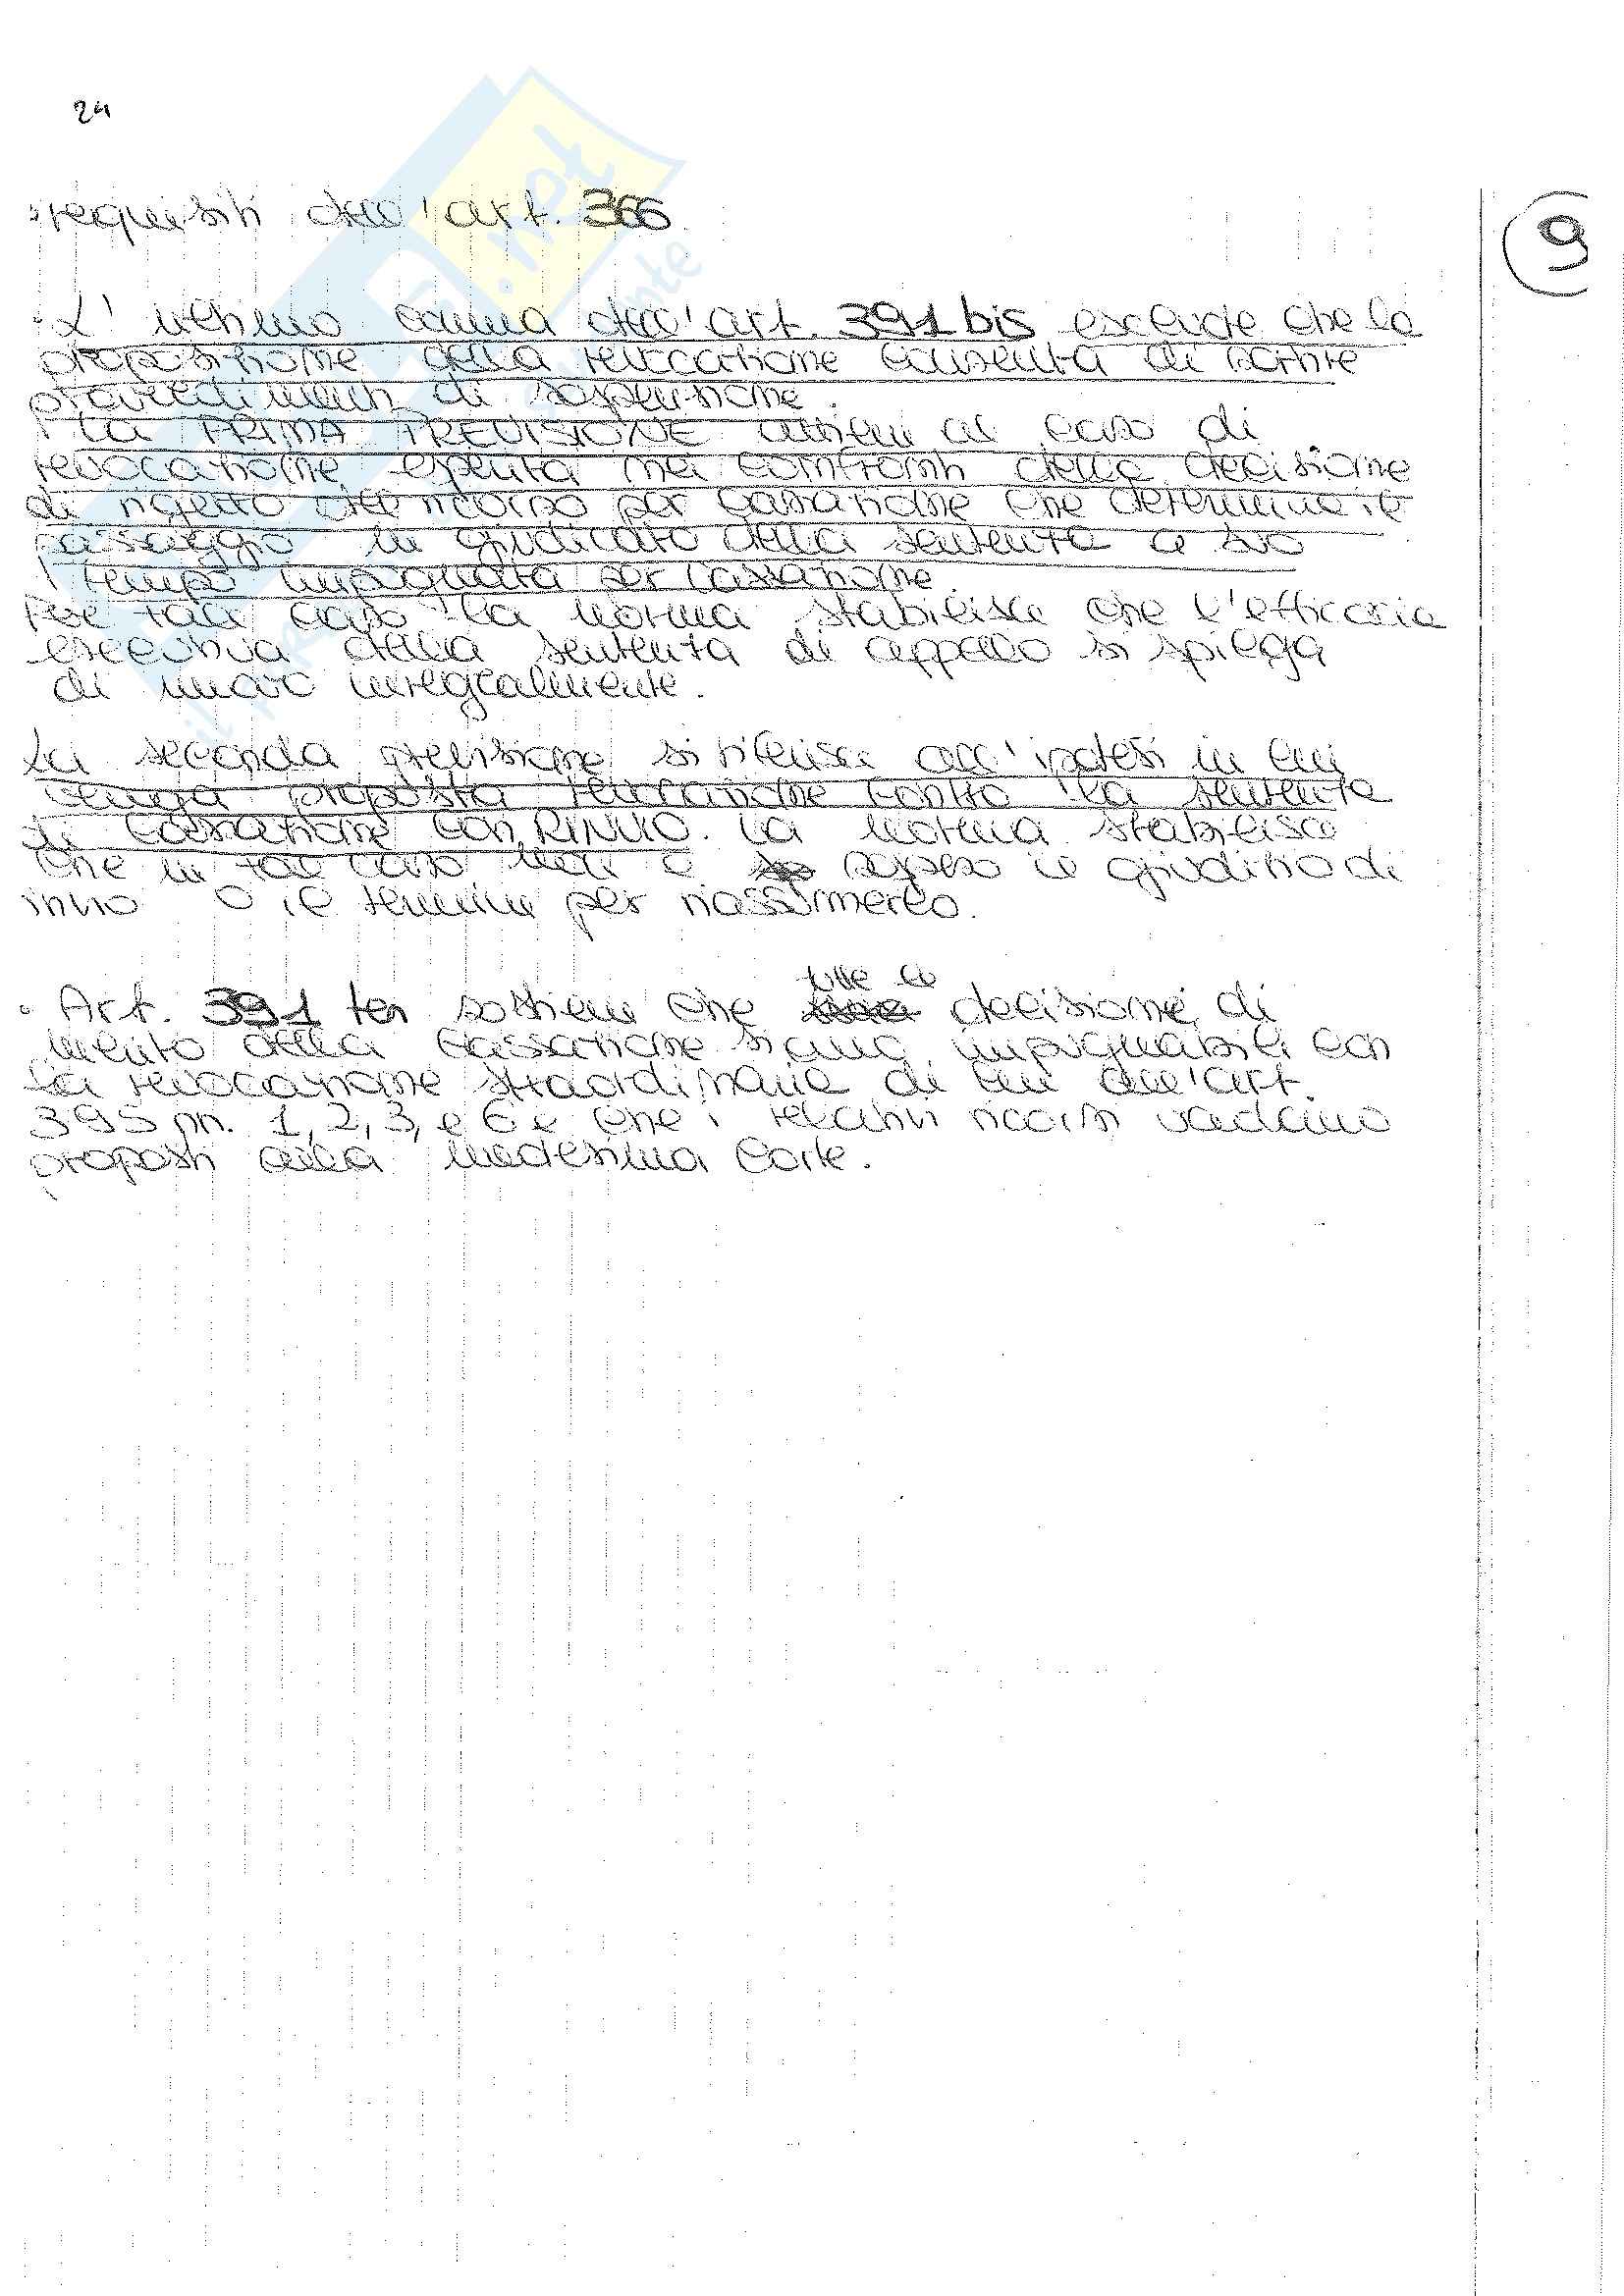 24
requisiti dell'art. 366
9
• L'ultimo comma dell'art. 391 bis esclude che la
proposizione della revocazione consenta di
provvedimenti di sospensione.
La PRIMA PREVISIONE attiene al caso di
revocazione esperita nei confronti della decisione
di rigetto del ricorso per cassazione che determina il
passaggio in giudicato della sentenza a suo
tempo impugnata per Cassazione.
Per tale caso la norma stabilisce che l'efficacia
esecutiva della sentenza di appello si spiega
di nuovo integralmente.
La seconda previsione si riferisce all'ipotesi in cui
venga proposta revocazione contro la sentenza
di cassazione con RINVIO. La norma stabilisce
che in tal caso non è sospeso il giudizio di
rinvio o il termine per riassumerlo.
tutte le
• Art. 391 ter sostiene che decisione di
merito della Cassazione siano impugnabili con
la revocazione straordinaria di cui all'art.
395 nn. 1, 2, 3, e 6 e che i relativi ricorsi vadano
proposti alla medesima Corte.